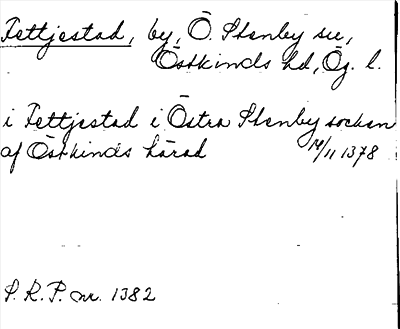 Tettjestad, by, Ö. Stenby sn,
Östkinds hd, Ög. l.
i Tettjestad i Östra Stenby socken
af Östkinds härad 14/11 1378
S. R. P. nr. 1382